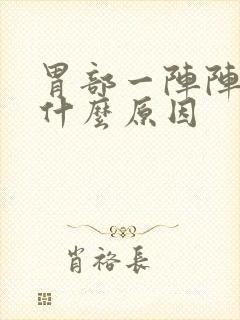 胃部一陣陣
什麼原因
肖裕長